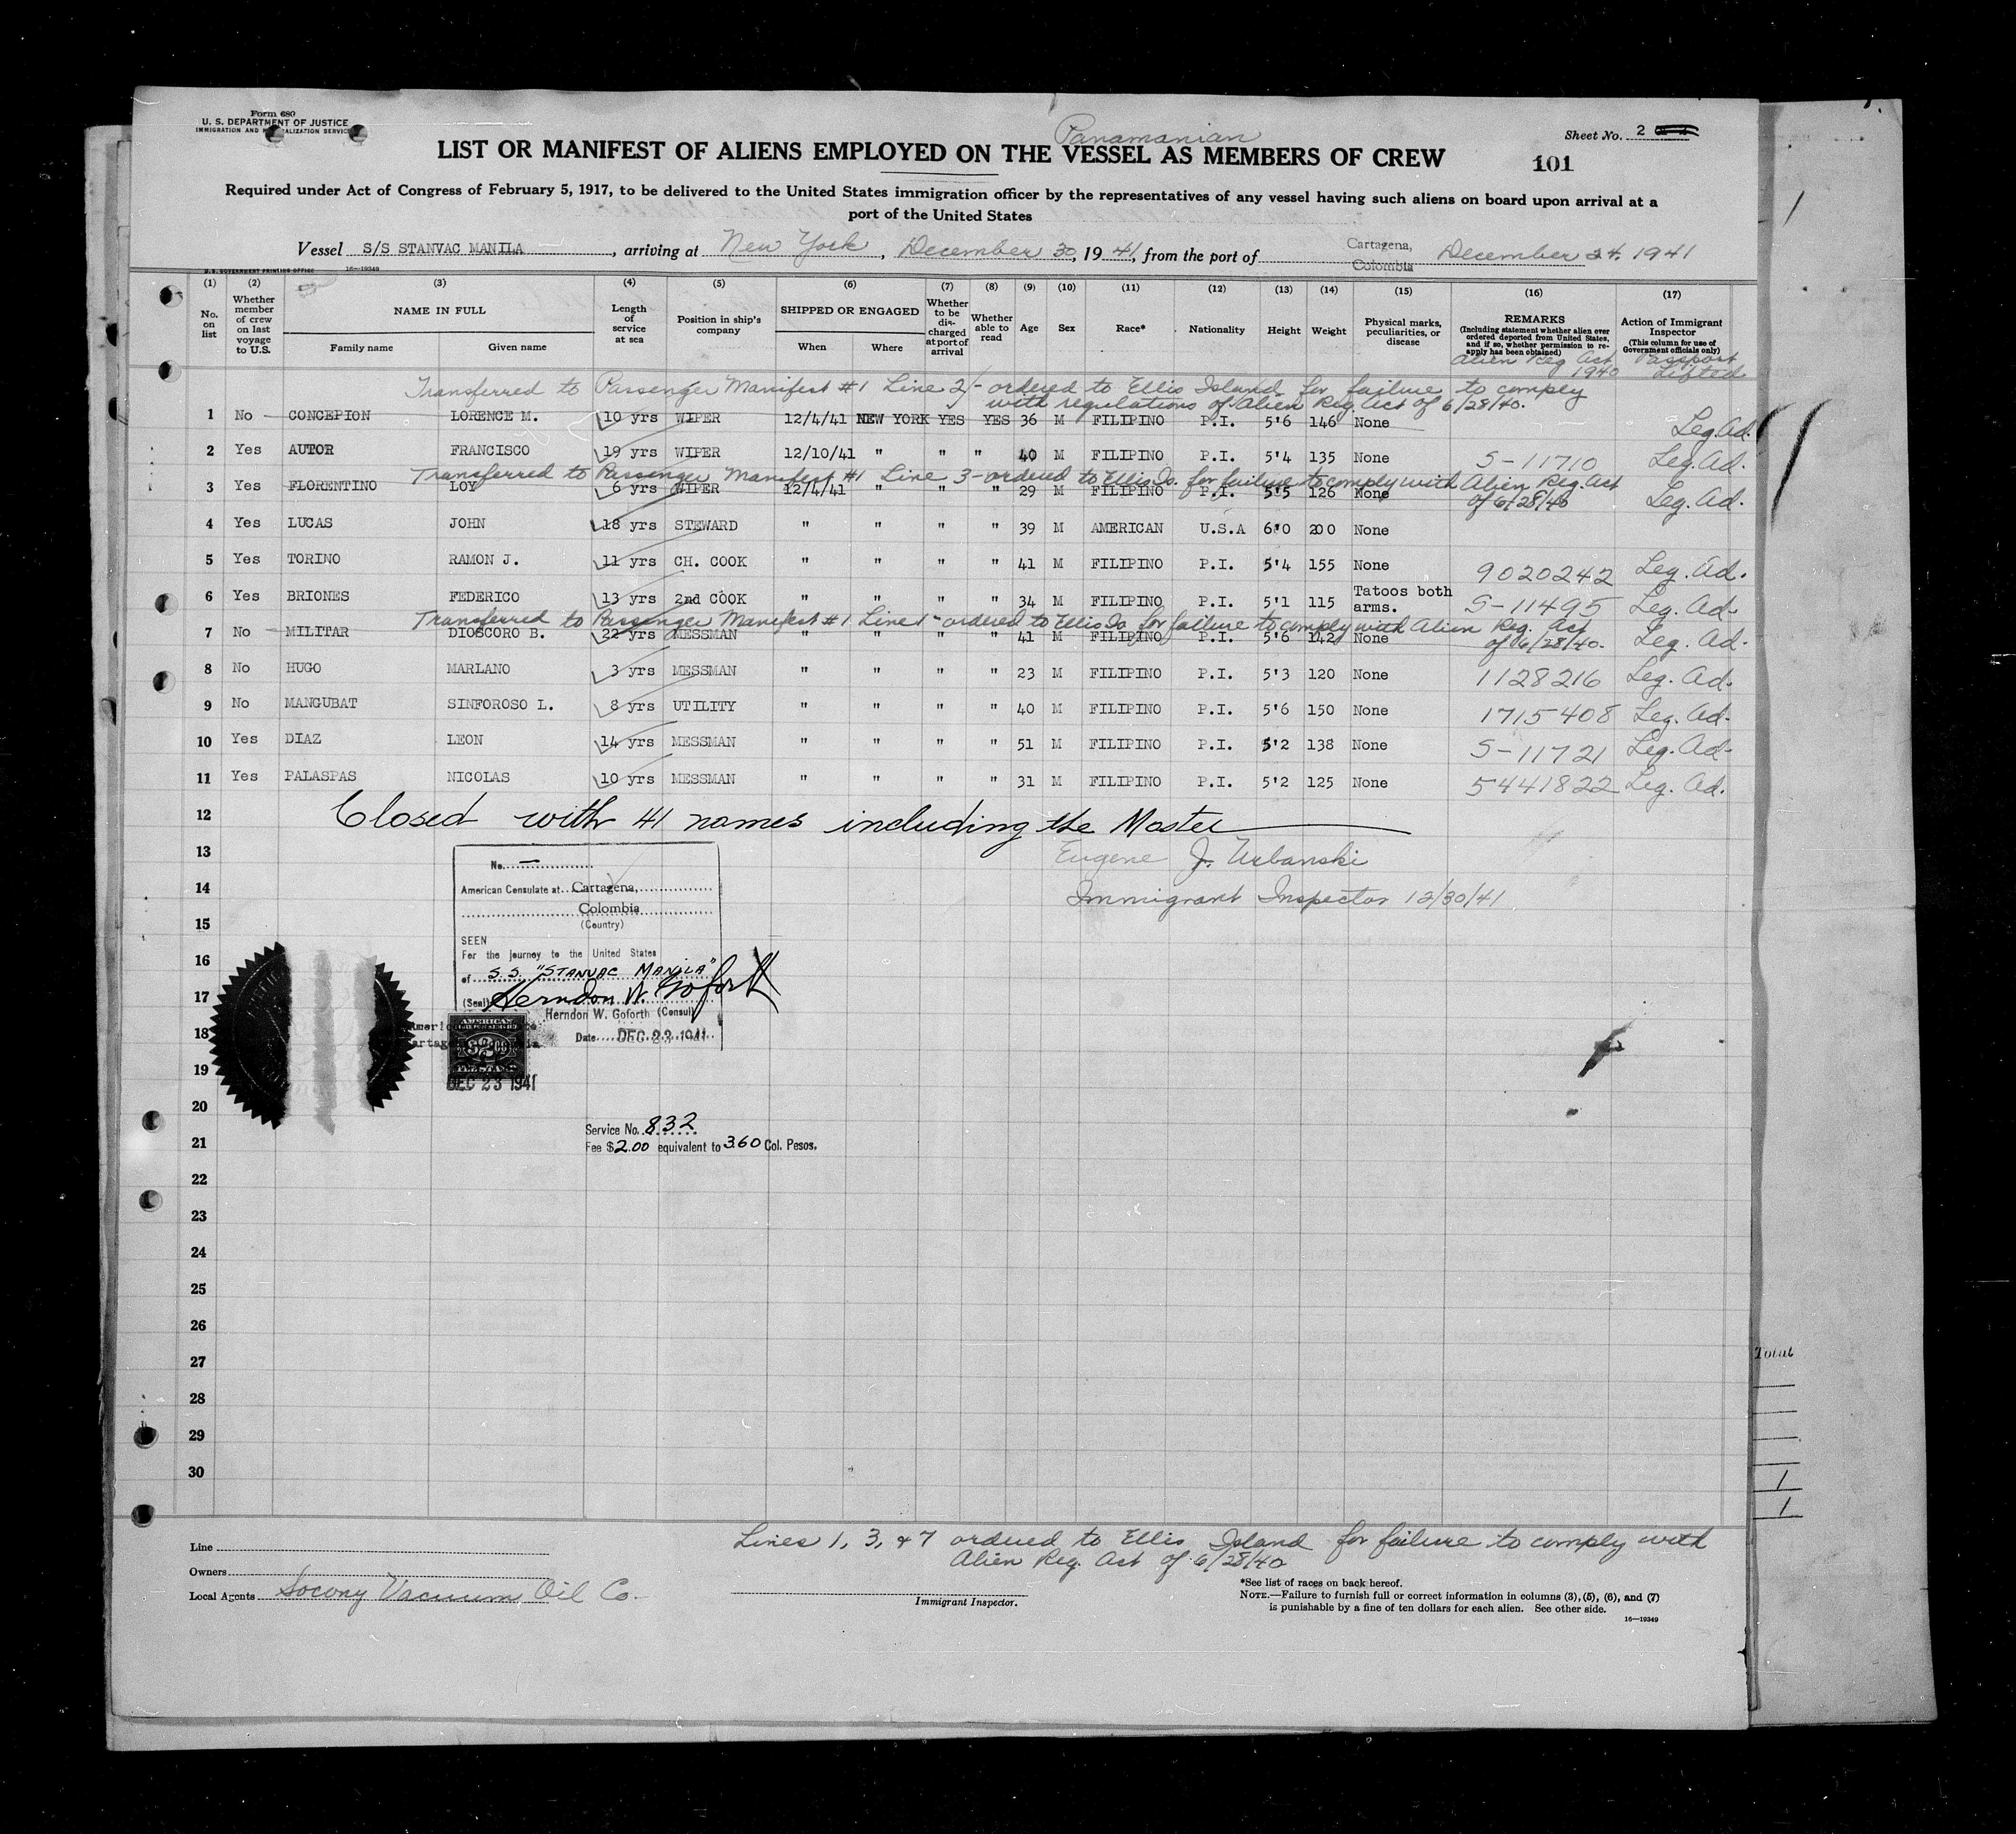 Form 680
U. S. DEPARTMENT OF JUSTICE
IMMIGRATION AND NATURALIZATION SERVICE
Panamanian
Sheet No. 2
LIST OR MANIFEST OF ALIENS EMPLOYED ON THE VESSEL AS MEMBERS OF CREW
101
Required under Act of Congress of February 5, 1917, to be delivered to the United States immigration officer by the representatives of any vessel having such aliens on board upon arrival at a
port of the United States
Vessel S/S STANVAC MANILA, arriving at New York, December 30, 1941, from the port of Cartagena, Colombia December 24, 1941
U. S. GOVERNMENT PRINTING OFFICE 16—19349
(1) (2) (3) (4) (5) (6) (7) (8) (9) (10) (11) (12) (13) (14) (15) (16) (17)
No. on list
Whether member of crew on last voyage to U.S.
NAME IN FULL
Family name Given name
Length of service at sea
Position in ship's company
SHIPPED OR ENGAGED
When Where
Whether to be discharged at port of arrival
Whether able to read
Age Sex Race* Nationality Height Weight
Physical marks, peculiarities, or disease
REMARKS
(Including statement whether alien ever ordered deported from United States, and if so, whether permission to reapply has been obtained)
Alien Reg Act 1940
Action of Immigrant Inspector
(This column for use of Government officials only)
Passport Lifted
Transferred to Passenger Manifest #1 Line 2 - ordered to Ellis Island for failure to comply
with regulations of Alien Reg. Act of 6/28/40.
1 No CONCEPION LORENCE M. 10 yrs WIPER 12/4/41 NEW YORK YES YES 36 M FILIPINO P.I. 5'6 146 None Leg. Ad.
2 Yes AUTOR FRANCISCO 19 yrs WIPER 12/10/41 " " " 40 M FILIPINO P.I. 5'4 135 None S-11710 Leg. Ad.
Transferred to Passenger Manifest #1 Line 3 - ordered to Ellis Is. for failure to comply with Alien Reg. Act
of 6/28/40
3 Yes FLORENTINO LOY 6 yrs WIPER 12/4/41 " " " 29 M FILIPINO P.I. 5'5 126 None Leg. Ad.
4 Yes LUCAS JOHN 18 yrs STEWARD " " " " 39 M AMERICAN U.S.A 6'0 200 None
5 Yes TORINO RAMON J. 11 yrs CH. COOK " " " " 41 M FILIPINO P.I. 5'4 155 None 9020242 Leg. Ad.
6 Yes BRIONES FEDERICO 13 yrs 2nd COOK " " " " 34 M FILIPINO P.I. 5'1 115 Tatoos both arms. S-11495 Leg. Ad.
Transferred to Passenger Manifest #1 Line 1 - ordered to Ellis Is for failure to comply with Alien Reg. Act
of 6/28/40.
7 No MILITAR DIOSCORO B. 22 yrs MESSMAN " " " " 41 M FILIPINO P.I. 5'6 142 None Leg. Ad.
8 No HUGO MARLANO 3 yrs MESSMAN " " " " 23 M FILIPINO P.I. 5'3 120 None 1128216 Leg. Ad.
9 No MANGUBAT SINFOROSO L. 8 yrs UTILITY " " " " 40 M FILIPINO P.I. 5'6 150 None 1715408 Leg. Ad.
10 Yes DIAZ LEON 14 yrs MESSMAN " " " " 51 M FILIPINO P.I. 5'2 138 None S-11721 Leg. Ad.
11 Yes PALASPAS NICOLAS 10 yrs MESSMAN " " " " 31 M FILIPINO P.I. 5'2 125 None 5441822 Leg. Ad.
12 Closed with 41 names including the Master
13 Eugene J. Urbanski
14 Immigrant Inspector 12/30/41
15
16
17
18
19
20
21
22
23
24
25
26
27
28
29
30
No. —
American Consulate at Cartagena,
Colombia
(Country)
SEEN
For the journey to the United States
of S.S. "STANVAC MANILA"
(Seal) Herndon W. Goforth
Herndon W. Goforth (Consul)
Date DEC 22 1941
AMERICAN
$2.00
DEC 23 1941
Service No. 832
Fee $2.00 equivalent to 3.60 Col. Pesos.
Total
Lines 1, 3, & 7 ordered to Ellis Island for failure to comply with
Alien Reg. Act of 6/28/40
Line
Owners
Local Agents Socony Vacuum Oil Co.
Immigrant Inspector.
*See list of races on back hereof.
NOTE.—Failure to furnish full or correct information in columns (3), (5), (6), and (7)
is punishable by a fine of ten dollars for each alien. See other side.
16—19349